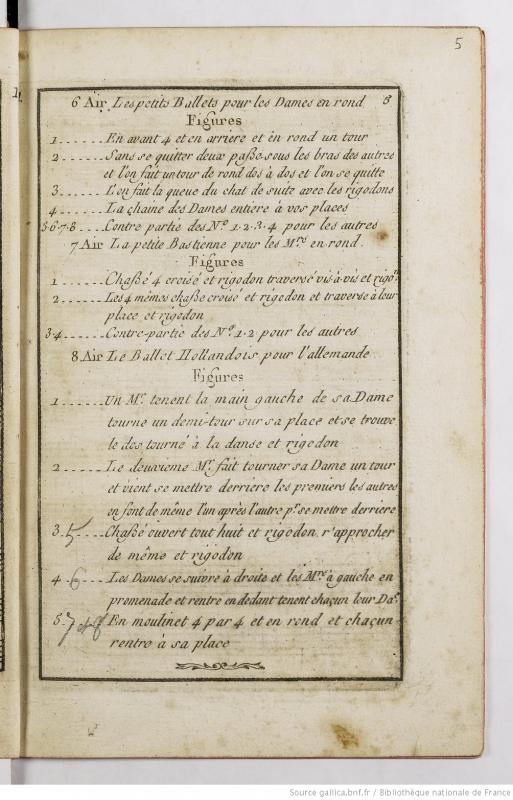 5
6 Air Les petits Ballets pour les Dames en rond 8
Figures
1 ...... En avant 4 et en arriere et en rond un tour
2 ...... Sans se quitter deux paße sous les bras des autres
et l'on fait un tour de rond dos à dos et l'on se quitte
3 ...... L'on fait la queue du chat de suite avec les rigodons
4 ...... La chaine des Dames entiere à vos places
5.6.7.8 ...... Contre partie des Nº. 1.2.3.4 pour les autres
7 Air La petite Bastienne pour les Mrs en rond.
Figures
1 ...... Chaßé 4 croisé et rigodon traversé vis-à-vis et rigo
2 ...... Les 4 mêmes chaße croisé et rigodon et traverse à leur
place et rigodon
3.4 ...... Contre-partie des Nº. 1.2 pour les autres
8 Air Le Ballet Hollandois pour l'allemande
Figures
1 ...... Un Mr. tenent la main gauche de sa Dame
tourne un demi-tour sur sa place et se trouve
le dos tourné à la danse et rigodon
2 ...... Le deuxieme Mr. fait tourner sa Dame un tour
et vient se mettre derriere les premiers les autres
en font de même l'un après l'autre pr. se mettre derriere
3. 5 ...... Chaßé ouvert tout huit et rigodon r'approcher
de même et rigodon
4 . 6 ...... Les Dames se suivre à droite et les Mrs à gauche en
promenade et rentre en dedant tenent chaqun leur Da.
5. 7 et 8 En moulinet 4 par 4 et en rond et chaqun
rentre à sa place
Source gallica.bnf.fr / Bibliothèque nationale de France